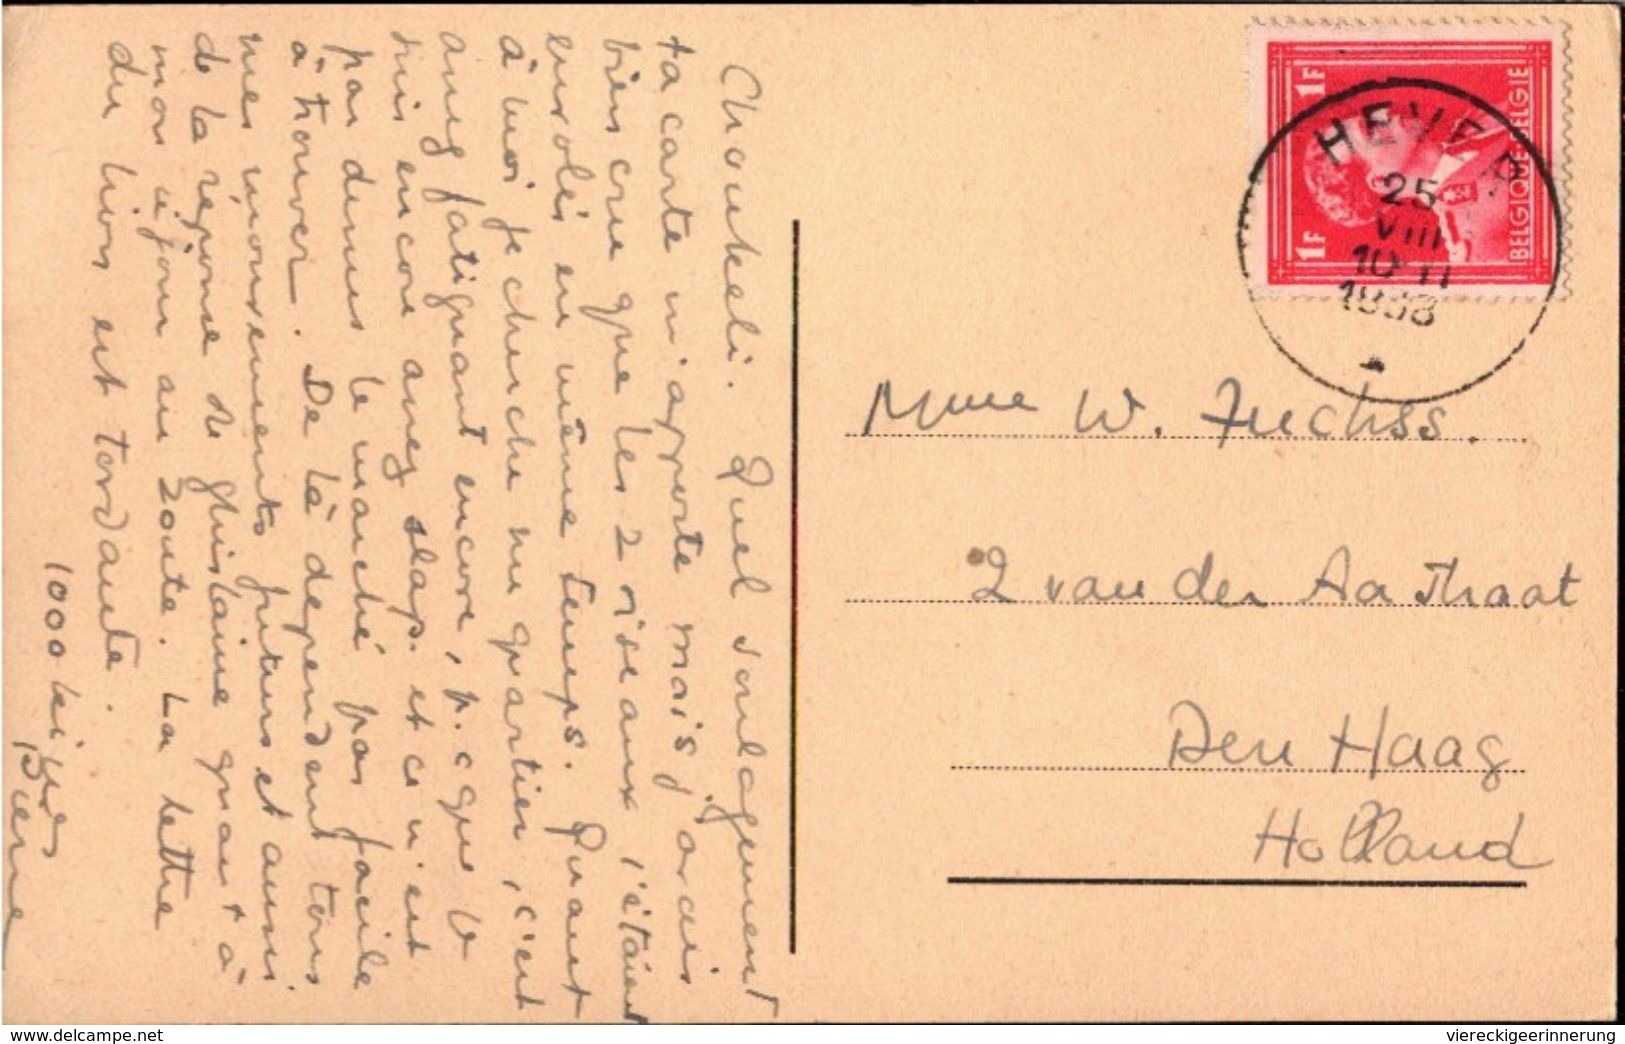 Choukeli. Quel soulagement
ta carte m'apporte mais j'avais
bien cru que les 2 oiseaux s'étaient
envolés en même temps. Quant
à moi je cherche un quartier, c'est
assez fatiguant encore, p. c. que
suis encore assez slap. et ce n'est
pas denus le marché pas facile
à trouver. De là dependent tous
mes mouvements futurs et aussi
de la réponse de Ghislaine quant à
mon séjour au Zoute. La lettre
du lion est tordante.
1000
HEVER
25
VIII
10 11
1938
1F
1F
BELGIQUE BELGIE
Mme W. Fuchss.
2 van der Aa Straat
Den Haag
Holland
www.delcampe.net
viereckigeerinnerung